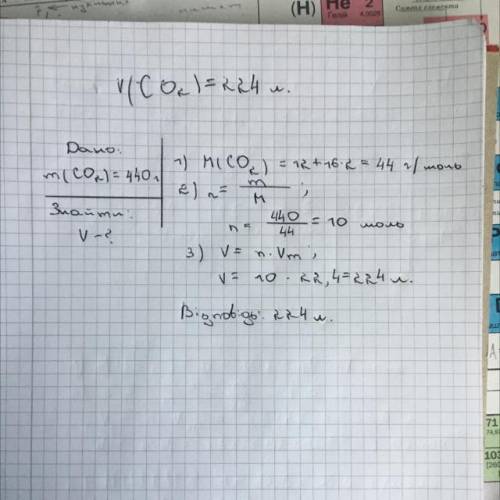 (H) He 2
Гелий 4,0026
V(CO₂)=224 л.
Дано:
m(CO₂)=440 г
Знайти:
V-?
1) M(CO₂) = 12+16·2 = 44 г/моль
2) n = m/M ;
n = 440/44 = 10 моль
3) V = n·Vm ;
V = 10 · 22,4 = 224 л.
Відповідь: 224 л.
71
103